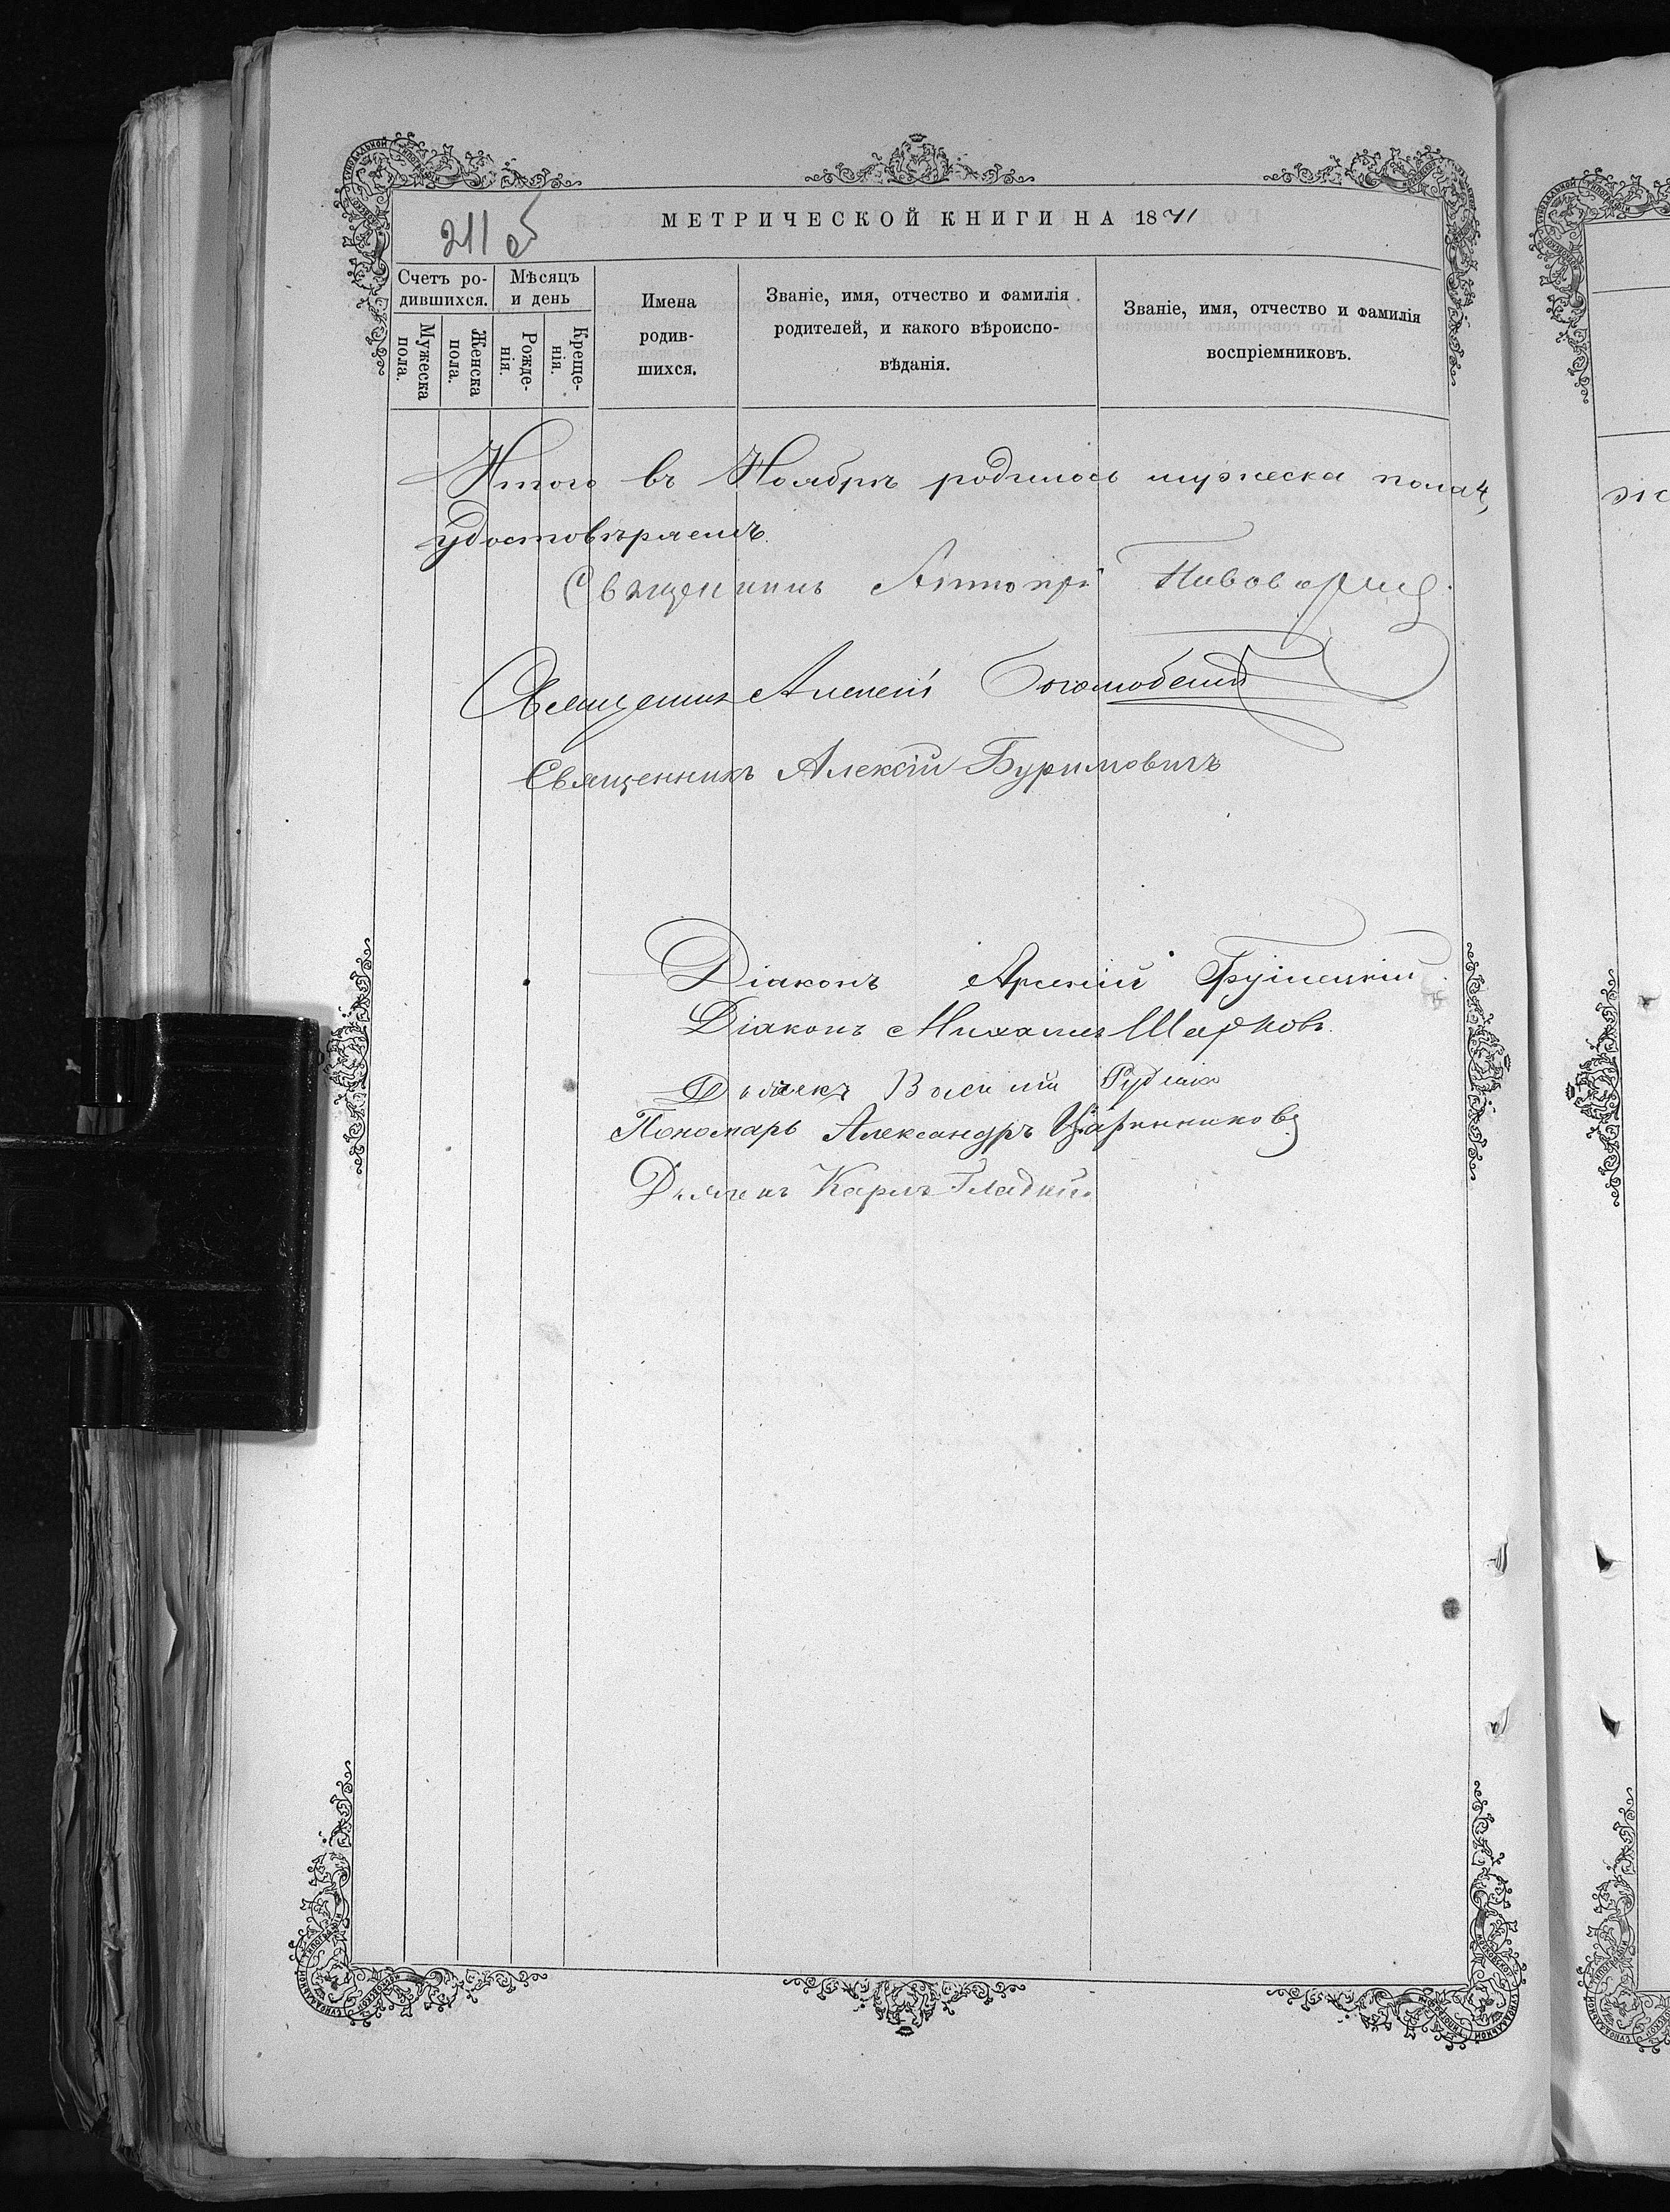 МЕТРИЧЕСКОЙ КНИГИ НА 1871
211 об
Счетъ ро-
дившихся.
Мѣсяцъ
и день
Мужеска
пола.
Женска
пола.
Рожде-
нія.
Креще-
нія.
Имена
родив-
шихся.
Званіе, имя, отчество и фамилія
родителей, и какого вѣроиспо-
вѣданія.
Званіе, имя, отчество и фамилія
воспріемниковъ.
Итого въ Ноябрѣ родилось мужеска пола 4,
удостовѣряемъ.
Священникъ Антоній
Священникъ Алексій Боголюбскій
Священникъ Алексій Буримовичъ
Діаконъ Арсеній
Діаконъ Михаилъ Шарковъ.
Дьячекъ Василій
Пономарь Александръ Царинниковъ
Дьячекъ Карпъ Гладкій.